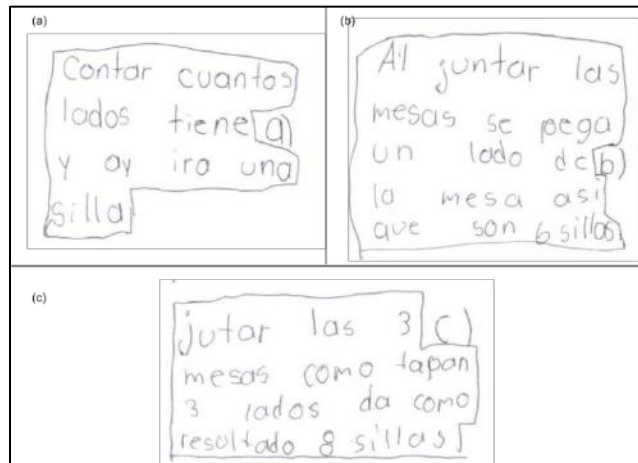 (a)
Contar cuantos
lados tiene a)
y ay ira una
silla
(b)
Al juntar las
mesas se pega
un lado de b)
la mesa asi
que son 6 sillas
(c)
jutar las 3 c)
mesas como tapan
3 lados da como
resultado 8 sillas